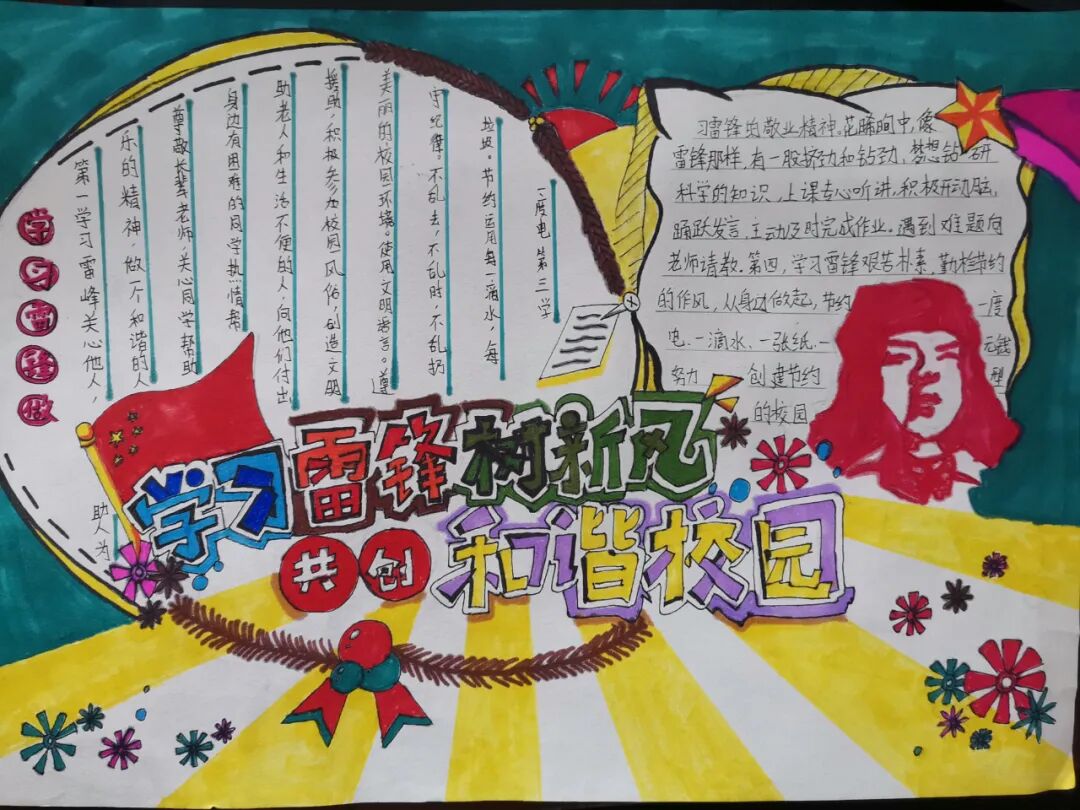 学习雷锋做
第一学习雷峰关心他人，
助人为
乐的精神，做一个和谐的人
尊敬长辈老师，关心同学帮助
身边有困难的同学热情帮
助老人和生活不便的人，向他们付出
援助，积极参加校园风俗，创造文明
美丽的校园环境。使用文明语言。遵
守纪律。不乱去，不乱时，不乱扔
垃圾。节约运用每一滴水，每
一度电 第三学
习雷锋的敬业精神。花中，像
雷锋那样，有一股挤劲和钻劲、梦想钻研
科学的知识，上课专心听讲，积极开动脑，
踊跃发言，主动及时完成作业。遇到难题向
老师请教。第四，学习雷锋艰苦朴素，勤俭节约
的作风，从身边做起，节约 一度
电、一滴水、一张纸、一 元钱
努力 创建节约 型
的校园
学习雷锋树新风
共创和谐校园